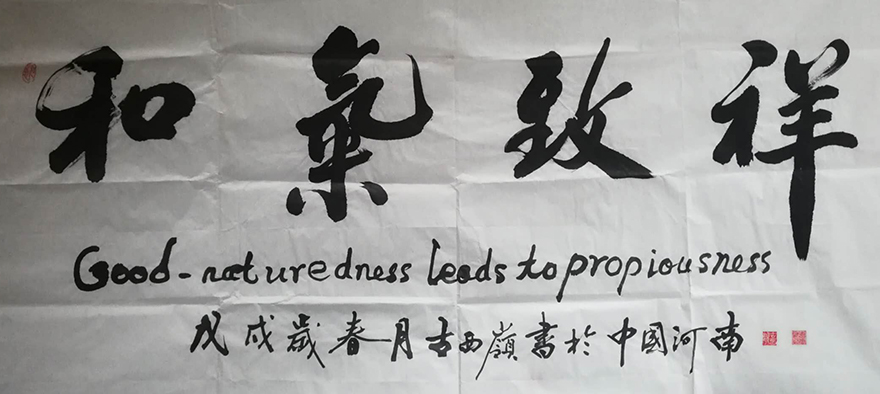 和氣致祥
Good-naturedness leads to propiousness
戊戌歲春月古西嶺書於中國河南